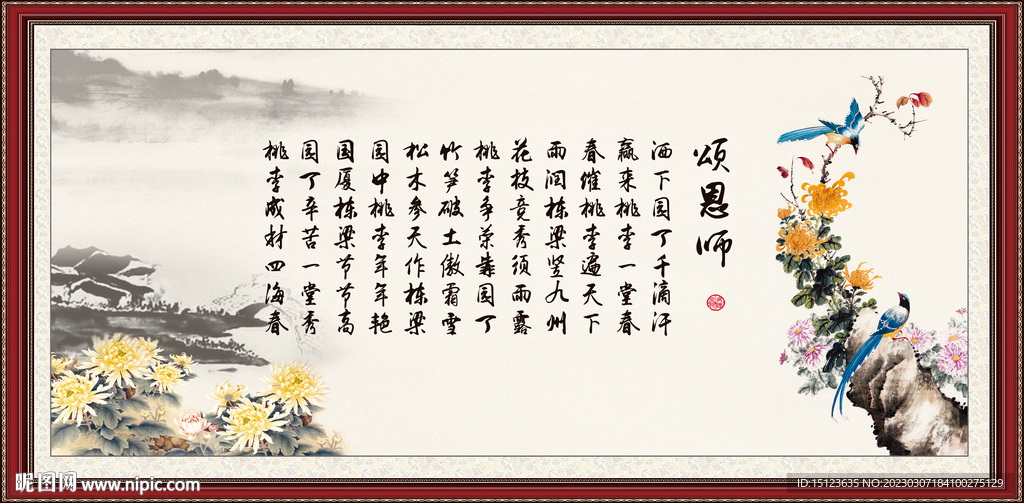 颂恩师
洒下园丁千滴汗
赢来桃李一堂春
春催桃李遍天下
雨润栋梁竖九州
花枝竞秀须雨露
桃李争荣靠园丁
竹笋破土傲霜雪
松木参天作栋梁
园中桃李年年艳
国厦栋梁节节高
园丁辛苦一堂秀
桃李成材四海春
昵图网 www.nipic.com
ID:15123635 NO:20230307184100275129